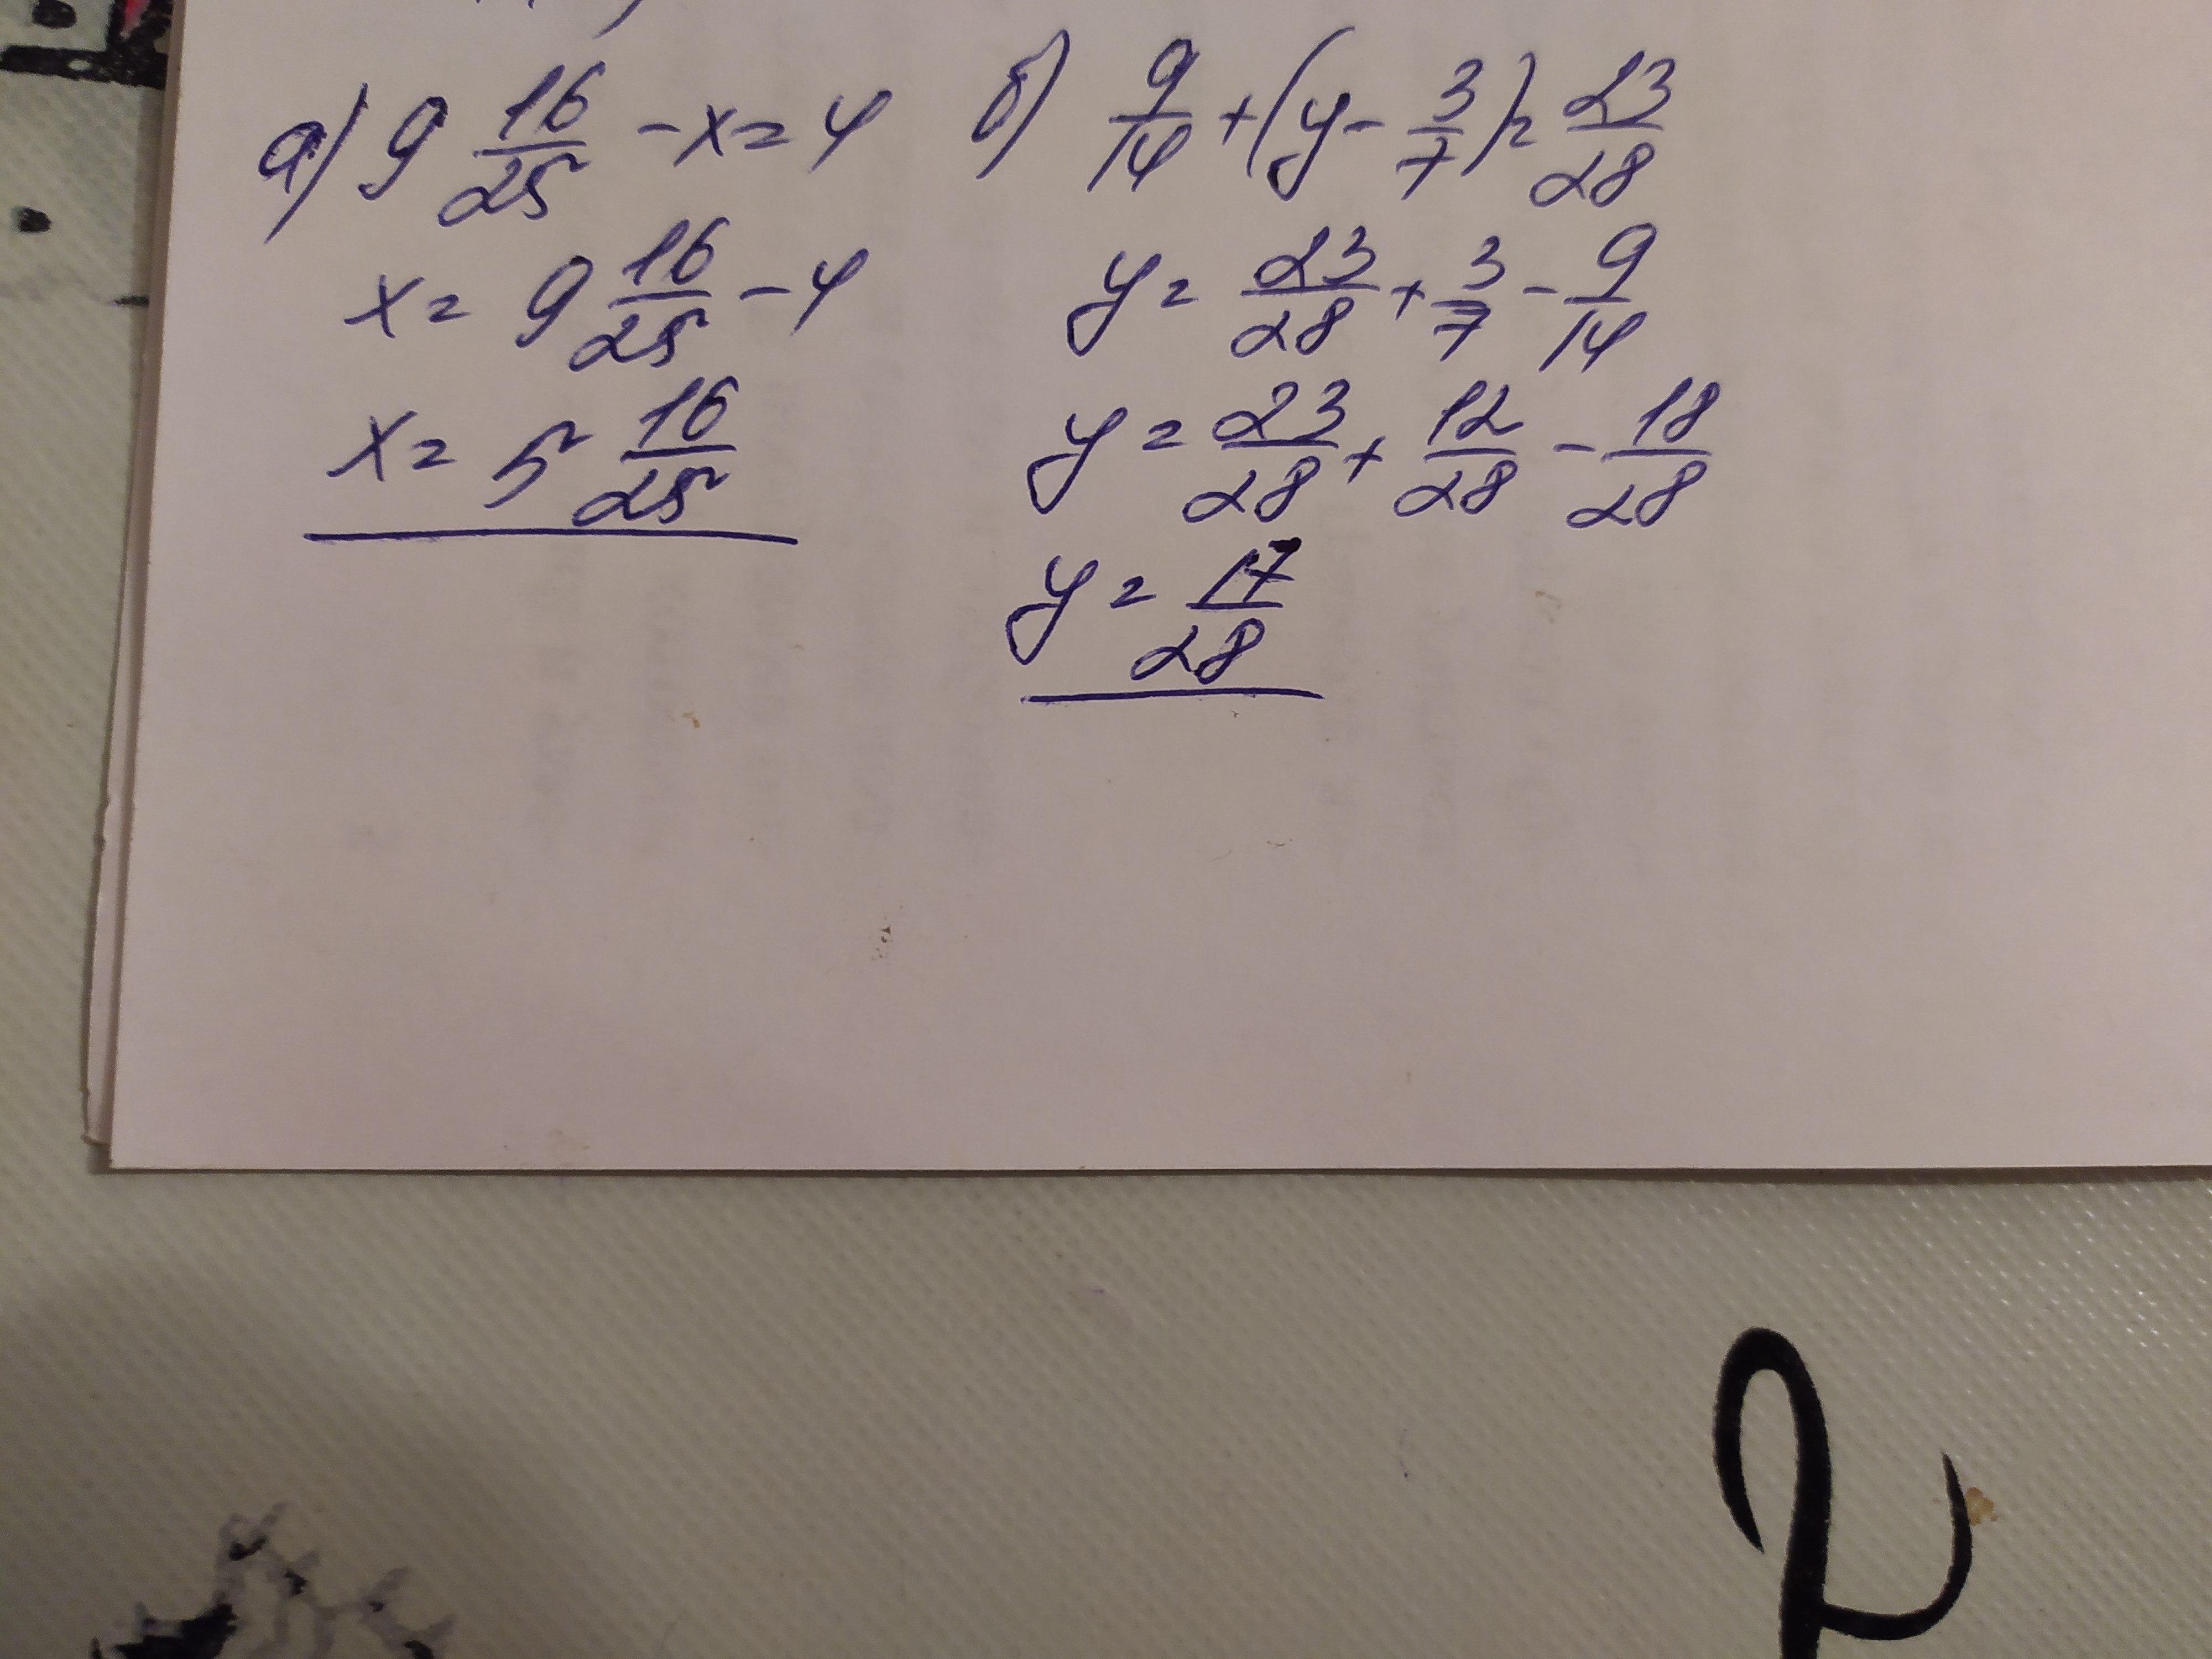 а) 9 16/25 - x = 4
x = 9 16/25 - 4
x = 5 16/25
б) 9/14 + (y - 3/7) = 23/28
y = 23/28 + 3/7 - 9/14
y = 23/28 + 12/28 - 18/28
y = 17/28